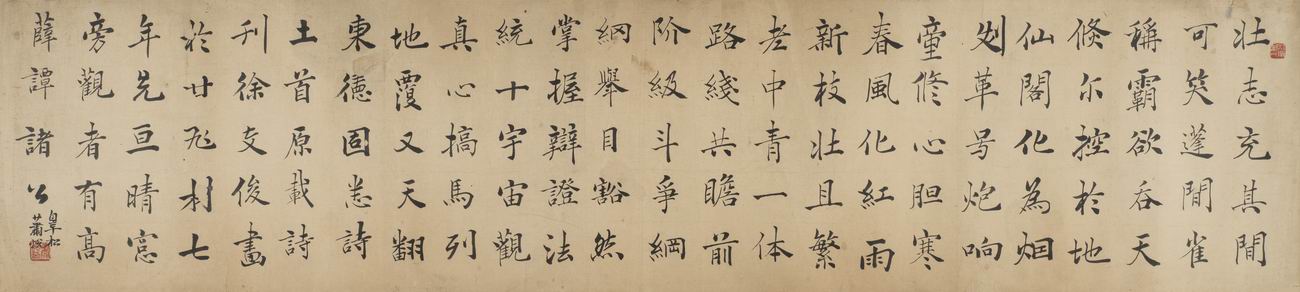 壮志充其間
可笑蓬間雀
稱霸欲吞天
倏尓控於地
仙閣化為烟
革号炮响
童修心胆寒
春風化紅雨
新枝壮且繁
老中青一体
路綫共瞻前
阶級斗爭綱
綱舉目豁然
掌握辯證法
統十宇宙觀
真心搞馬列
地覆又天翻
東德固詩
土首原載詩
刊徐俊畫
於廿七
年先亘晴窓
旁觀者有高
薛譚諸公
蕭